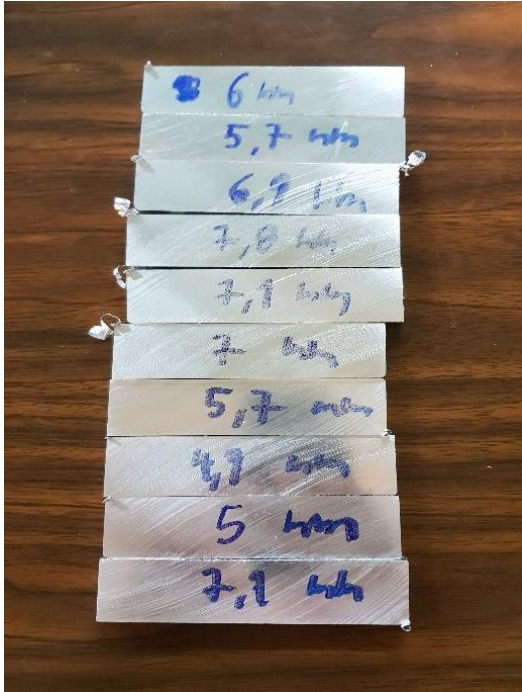 6 mm
5,7 mm
6,1 mm
7,8 mm
7,1 mm
7 mm
5,7 mm
4,1 mm
5 mm
7,1 mm